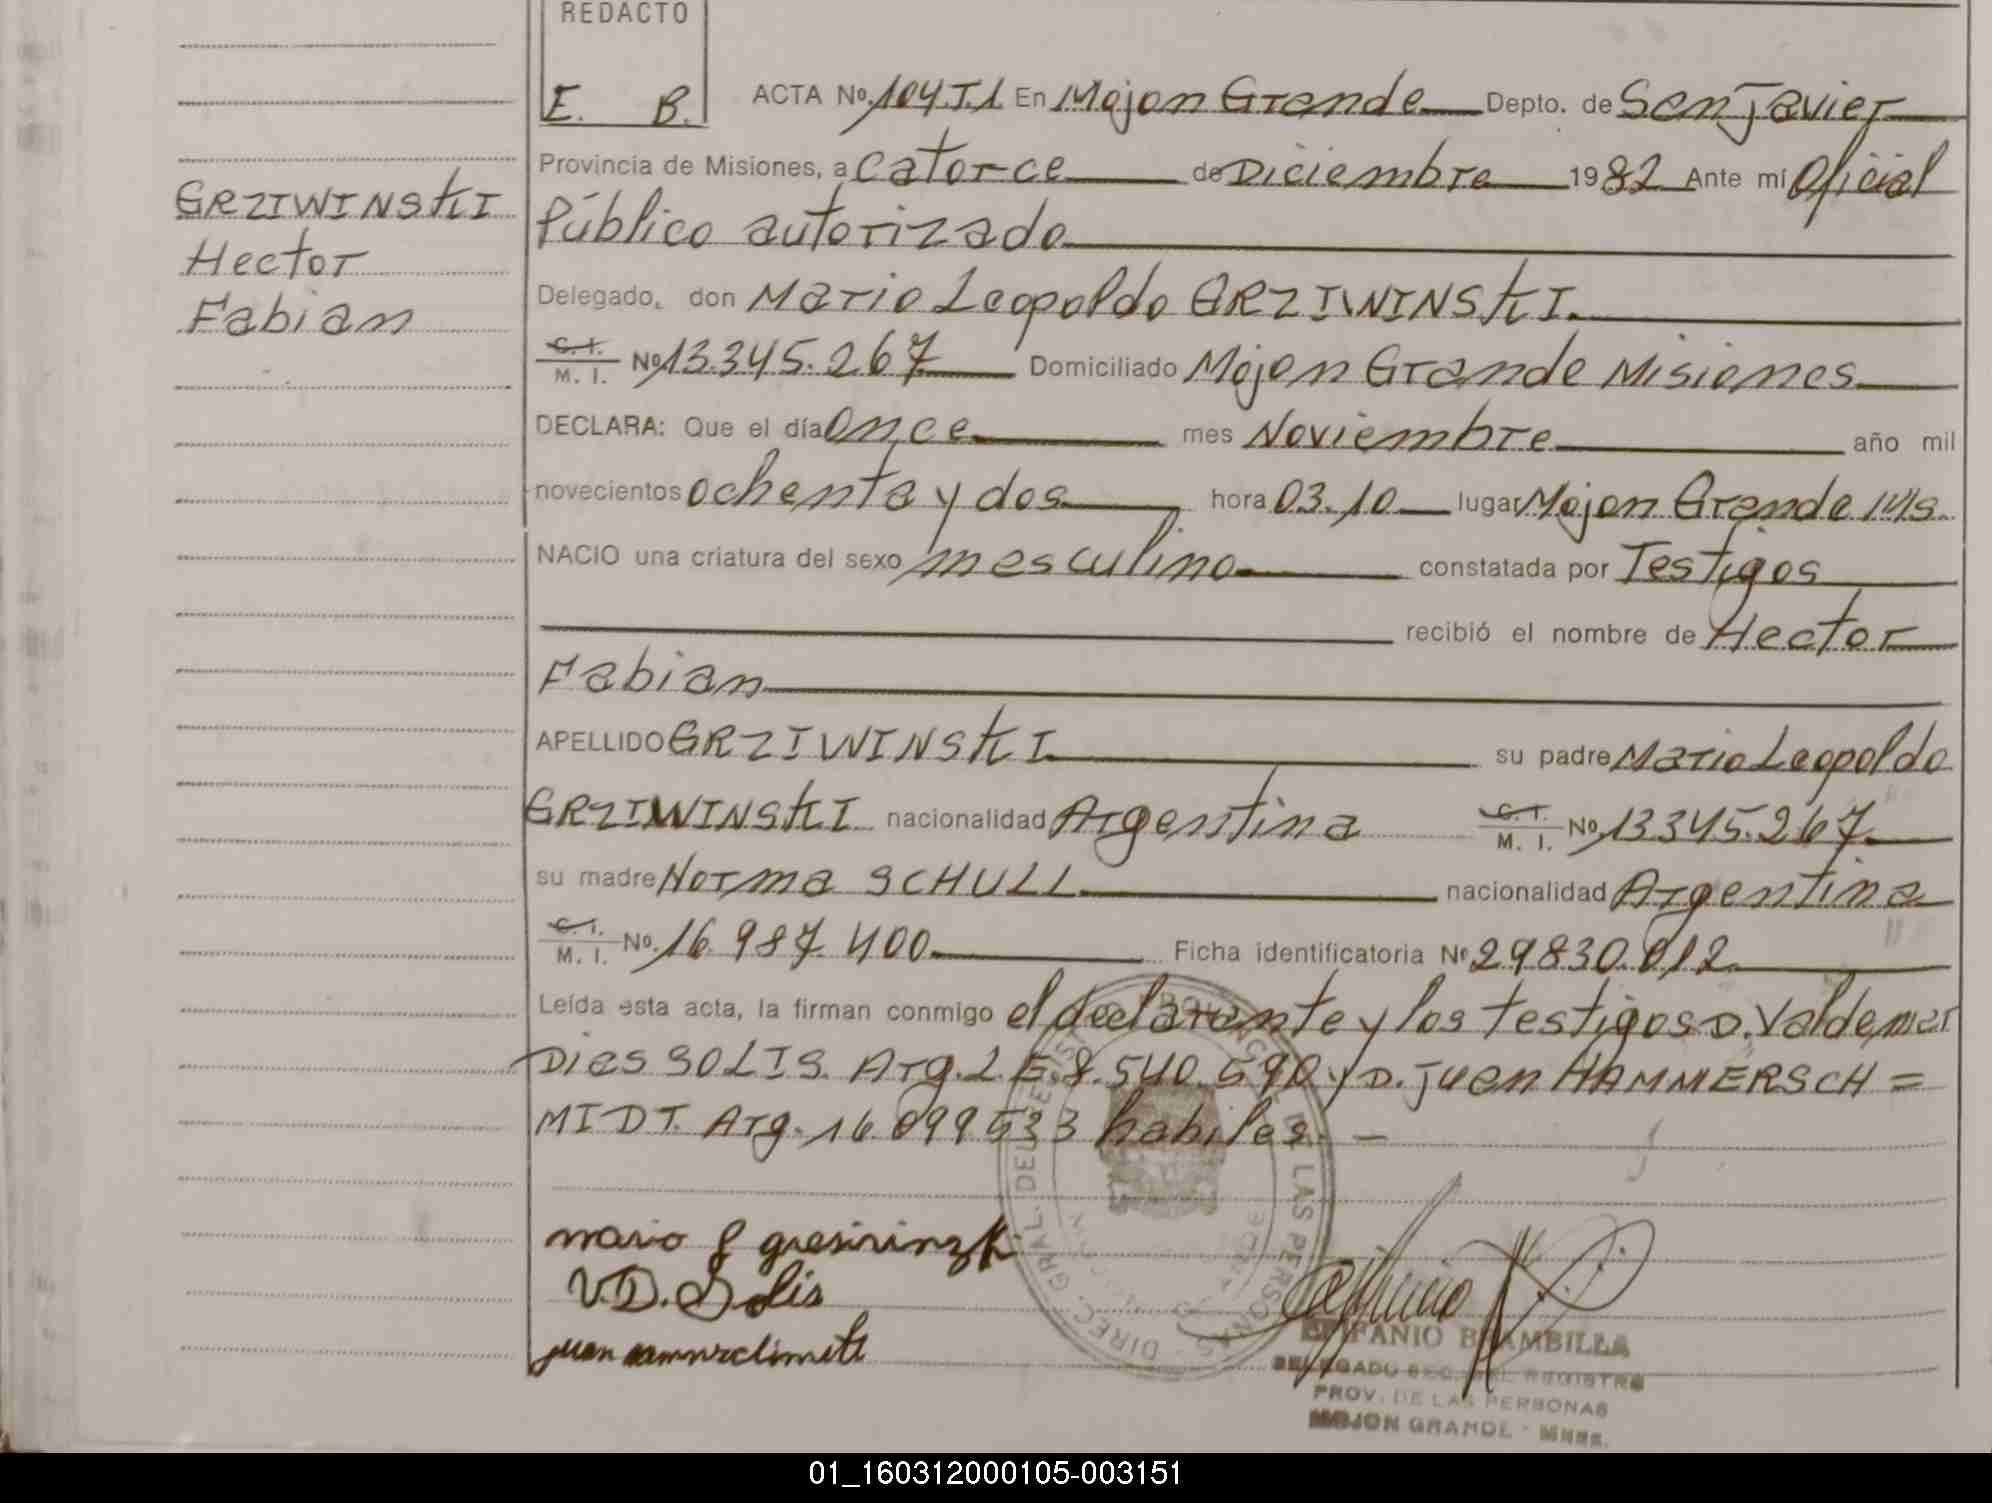 REDACTO
E. B.
ACTA No. 104.T.1 En Mojon Grande Depto. de San Javier
Provincia de Misiones, a catorce de Diciembre 1982 Ante mí Oficial
Público autorizado
GRZIWINSKI
Hector
Fabian
Delegado, don Mario Leopoldo GRZIWINSKI.
C. I. M. I. No 13.345.267 Domiciliado Mojon Grande Misiones
DECLARA: Que el día once mes Noviembre año mil
novecientos ochenta y dos hora 03.10 lugar Mojon Grande Ms.
NACIO una criatura del sexo masculino constatada por Testigos
recibió el nombre de Hector
Fabian
APELLIDO GRZIWINSKI su padre Mario Leopoldo
GRZIWINSKI nacionalidad Argentina C. I. M. I. No 13345.267
su madre Norma SCHULL nacionalidad Argentina
C. I. M. I. No. 16.987.400 Ficha identificatoria No 29830.012
Leída esta acta, la firman conmigo el declarante y los testigos D. Valdemar
Dias SOLIS. Arg. L.E. 8.540.590 y D. Juan HAMMERSCH=
MIDT. Arg. 16.099533 habiles. —
V.D. Solis
DIREC. GRAL. DEL REGISTRO PROVINCIAL DE LAS PERSONAS
EPIFANIO BRAMBILLA
DELEGADO SEC. DEL REGISTRO
PROV. DE LAS PERSONAS
MOJON GRANDE - MNES.
01_160312000105-003151